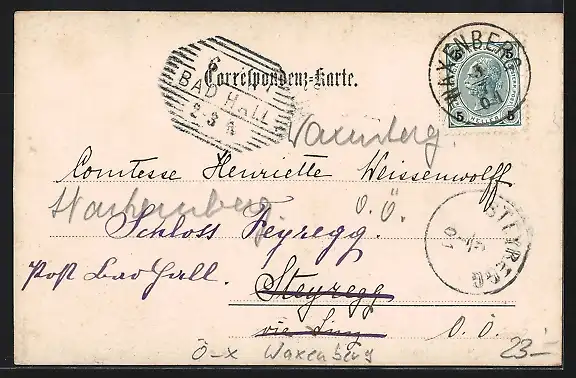 WAXENBERG
5 5
HELLER
5 5
6
BAD HALL
Correspondenz-Karte.
Waxenberg.
Comtesse Henriette Weissenwolff
O.Ö.
Schloss Feyregg.
STEYREGG
Post Bad Hall.
Steyregg
via Linz O.Ö.
Ö-X Waxenberg
23.-